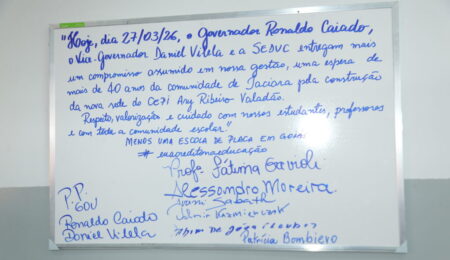 "Hoje, dia 27/03/26, o Governador Ronaldo Caiado,
o Vice-Governador Daniel Vilela e a SEDUC entregam mais
um compromisso assumido em nossa gestão, uma espera de
mais de 40 anos da comunidade de Jaciara pela construção
da nova sede do CEPI Ary Ribeiro Valadão.
Respeito, valorização e cuidado com nossos estudantes, professores
e com toda a comunidade escolar."
MENOS UMA ESCOLA DE PLACA EM GOIÁS
#euacreditonaeducação
Profª Fátima Gavioli
Alessandro Moreira
P.P.
GOV
Ronaldo Caiado
Daniel Vilela
Patrícia Bombiero